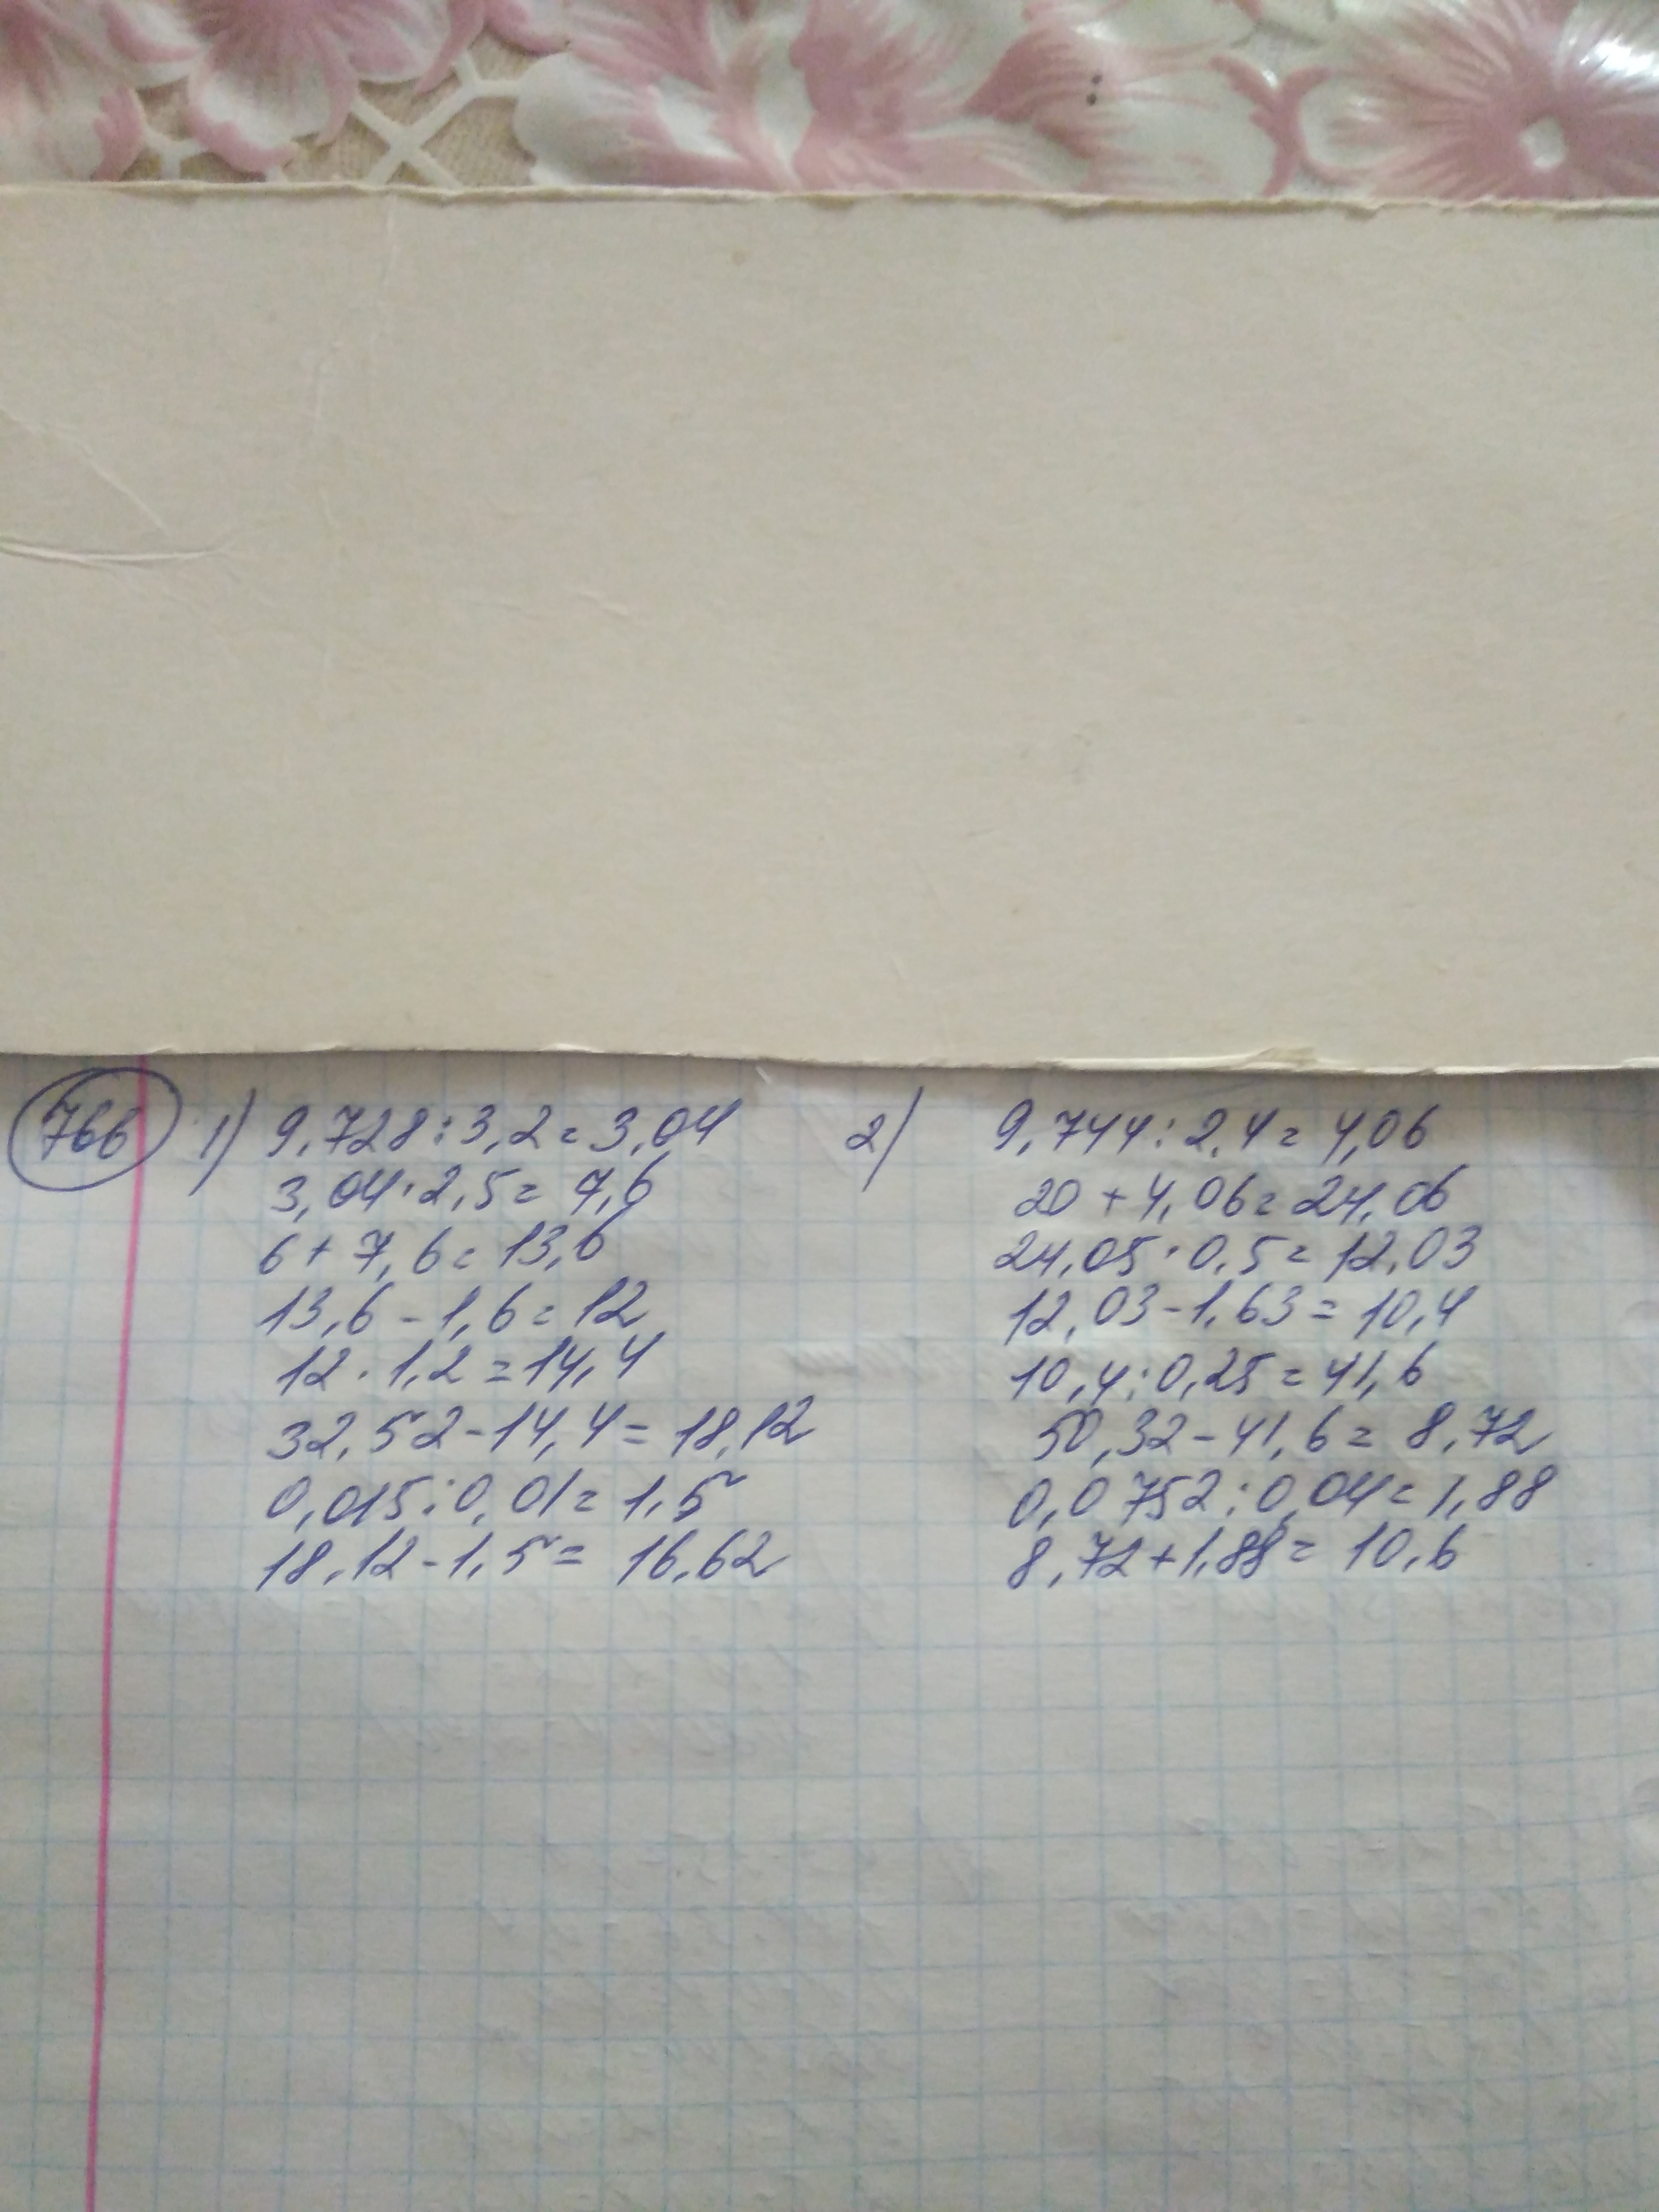 766 1) 9,728:3,2=3,04
3,04·2,5=7,6
6+7,6=13,6
13,6-1,6=12
12·1,2=14,4
32,52-14,4=18,12
0,015:0,01=1,5
18,12-1,5=16,62
2) 9,744:2,4=4,06
20+4,06=24,06
24,05·0,5=12,03
12,03-1,63=10,4
10,4:0,25=41,6
50,32-41,6=8,72
0,0752:0,04=1,88
8,72+1,88=10,6